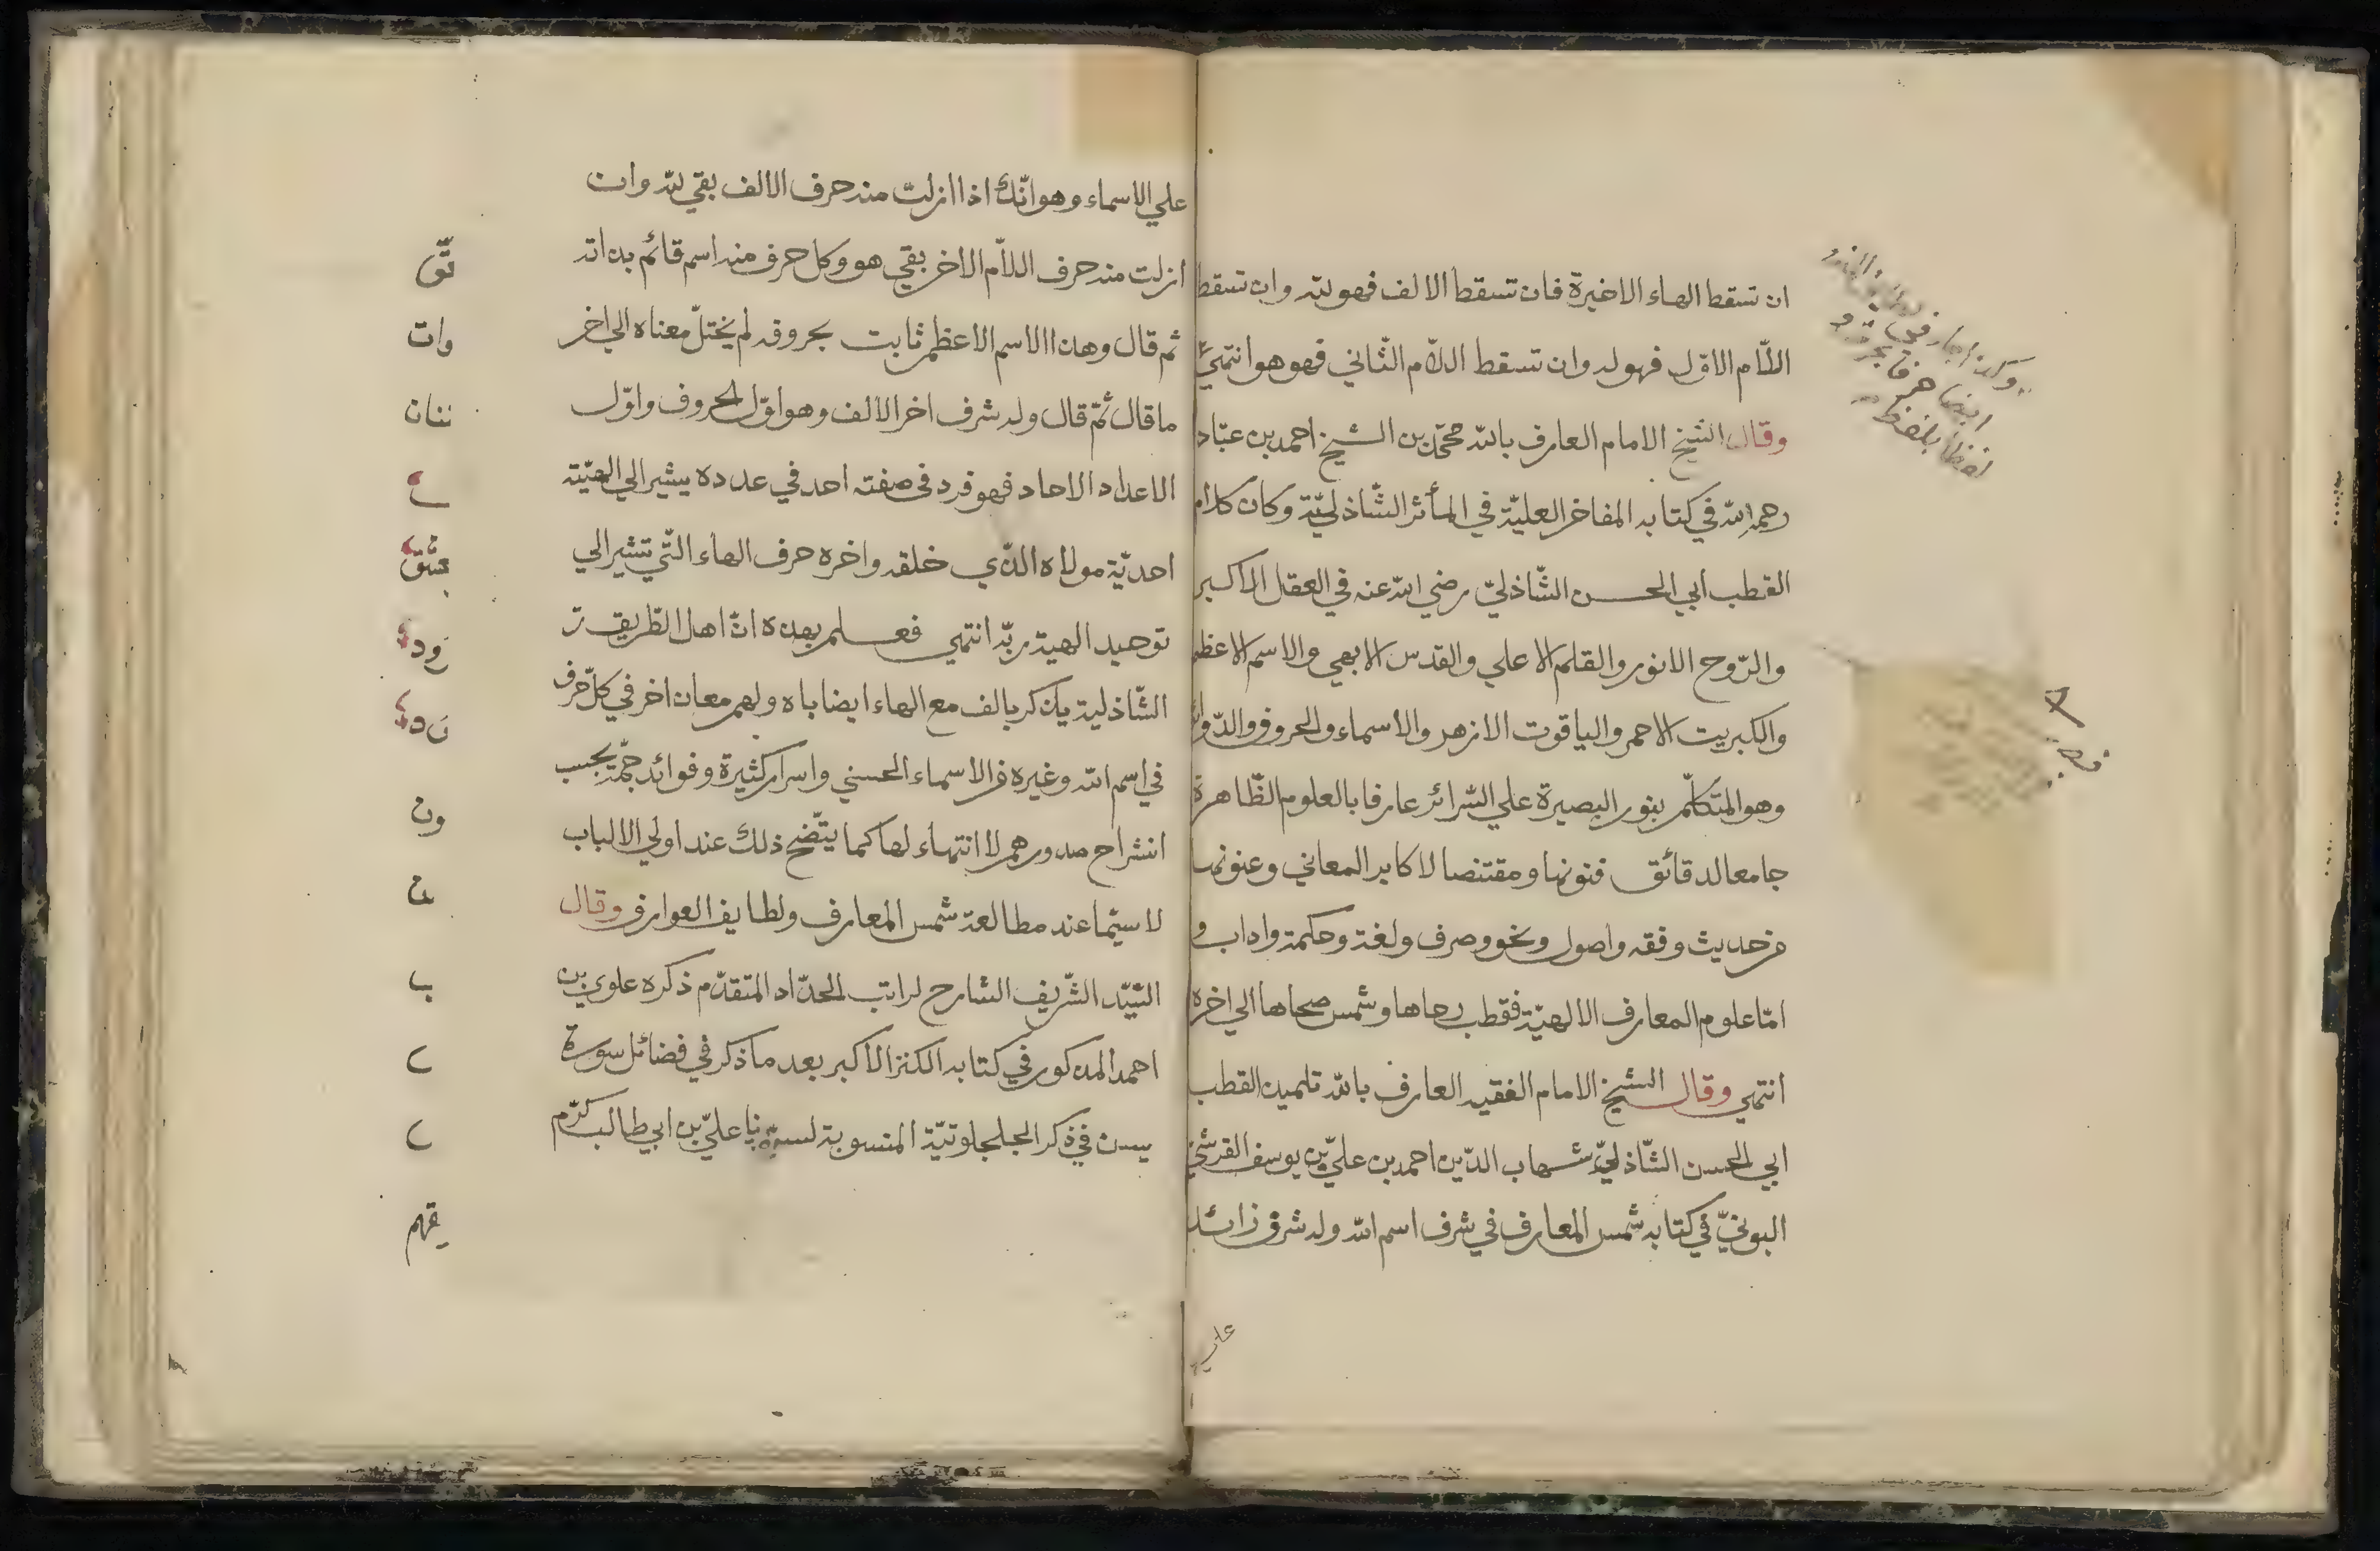 ان تسقط الهاء الاخيرة فان تسقط الالف فهو لله وان تسقط
اللّام الاوّل فهو له وان تسقط اللّام الثّاني فهو هو انتهيٰ
وقال الشيخ الامام العارف بالله محمّد بن الشيخ احمد بن عبّاد
رحمه الله في كتابه المفاخر العليّة في المأثر الشّاذليّة وكان كلام
القطب أبي الحسن الشّاذليّ رضي الله عنه في العقل الاكبر
والرّوح الانور والقلم الاعلي والقدس الابهي والاسم الاعظم
والكبريت الاحمر والياقوت الازهر والاسماء والحروف والدّوائر
وهو المتكلّم بنور البصيرة علي السّرائر عارفا بالعلوم الظّاهرة
جامعا لدقائق فنونها ومقتنصا لاكابر المعاني وعنونها
من حديث وفقه واصول ونحو وصرف ولغة وحكمة واداب و
امّا علوم المعارف الالهيّة فقطب رحاها وشمس ضحاها الي اخره
انتهي وقال الشيخ الامام الفقيه العارف بالله تلميذ القطب
ابي الحسن الشّاذليّ شهاب الدّين احمد بن عليّ بن يوسف القرشيّ
البونيّ في كتابه شمس المعارف في شرف اسم الله وله شرف زائد
علي
علي الاسماء وهو انّك اذا ازلت منه حرف الالف بقي لله وان
ازلت منه حرف اللّام الاخر بقي هو وكل حرف منه اسم قائم بذاته
ثم قال وهذا الاسم الاعظم ثابت بحروفه لم يختلّ معناه الي اخر
ما قال ثمّ قال وله شرف اخر الالف وهو اوّل الحروف واوّل
الاعداد الاحاد فهو فرد في صفته احد في عدده يشير الي الهيّة
احديّة مولاه الذّي خلقه واخره حرف الهاء التّي تشير الي
توحيد الهية ربّه انتهي فعلم بهذه انّ اهل الطّريقة
الشّاذلية يذكر بالف مع الهاء ايضا باه ولهم معان اخر في كلّ حرف
في اسم الله وغيره من الاسماء الحسني واسرار كثيرة وفوائد جمّة بحسب
انشراح صدورهم لا انتهاء لها كما يتّضح ذلك عند اولي الالباب
لا سيّما عند مطالعة شمس المعارف ولطايف العوارف وقال
السّيّد الشّريف الشارح لراتب الحدّاد المتقدّم ذكره علوي بن
احمد المذكور في كتابه الكنز الاكبر بعد ما ذكر في فضائل سورة
يسن في ذكر الجلجلوتيّة المنسوبة لسيّدنا عليّ بن ابي طالب كرّم